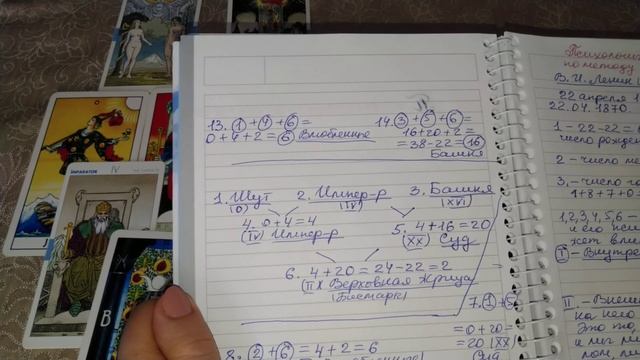 13. 1 + 4 + 6 =
0 + 4 + 2 = 6 Влюбленные
14. 3 + 5 + 6 =
16+20+2=
= 38-22 = 16
Башня
1. Шут
(0)
2. Импер-р
(IV)
3. Башня
(XVI)
4. 0+4=4
(IV) Импер-р
5. 4+16=20
(XX) Суд
6. 4+20=24-22=2
(II) Верховная Жрица
7. 1+5
= 0+20=
= 20 (XX)
Суд
8. 2+6 = 4+2=6
IMPARATOR IV
Психологич
по методу
В. И. Ленин
22 апреля 1
22.04.1870
1 - 22-22=
число рожде
2 - число ме
3, - число го
1+8+7+0
1,2,3,4,5,6 -
I - Внутре
II. - Внешн